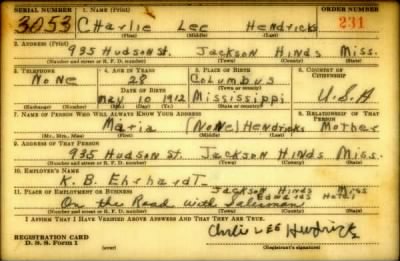 SERIAL NUMBER 1. NAME (Print) ORDER NUMBER
3053 CHarlie Lee HendricKs 231
(First) (Middle) (Last)
2. ADDRESS (Print)
935 HudsonSt. Jackson Hinds Miss.
(Number and street or R. F. D. number) (Town) (County) (State)
3. TELEPHONE 4. AGE IN YEARS 5. PLACE OF BIRTH 6. COUNTRY OF CITIZENSHIP
NoNe 28 Columbus
(Town or county)
DATE OF BIRTH
May 10 1912 Mississippi U.S.A
(Exchange) (Number) (Mo.) (Day) (Yr.) (State or country)
7. NAME OF PERSON WHO WILL ALWAYS KNOW YOUR ADDRESS 8. RELATIONSHIP OF THAT PERSON
Maria (NoNe) Hendricks Mother
(Mr., Mrs., Miss) (First) (Middle) (Last)
9. ADDRESS OF THAT PERSON
935 Hudson St. Jackson Hinds Miss
(Number and street or R. F. D. number) (Town) (County) (State)
10. EMPLOYER'S NAME
K. B. EhrhardT
11. PLACE OF EMPLOYMENT OR BUSINESS Jackson Hinds Miss
Edwards Hotel
On the Road with Salesman
(Number and street or R. F. D. number) (Town) (County) (State)
I AFFIRM THAT I HAVE VERIFIED ABOVE ANSWERS AND THAT THEY ARE TRUE.
REGISTRATION CARD Charlie LEE Hendricks
D. S. S. Form 1 (over) (Registrant's signature)